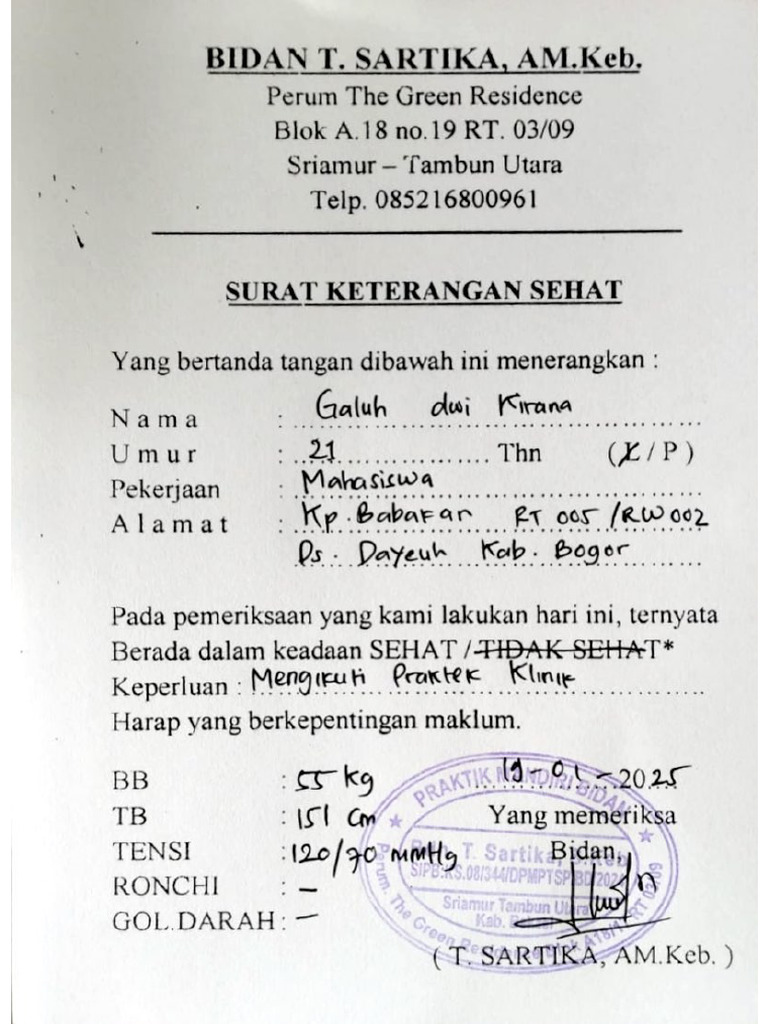 BIDAN T. SARTIKA, AM.Keb.
Perum The Green Residence
Blok A.18 no.19 RT. 03/09
Sriamur – Tambun Utara
Telp. 085216800961
SURAT KETERANGAN SEHAT
Yang bertanda tangan dibawah ini menerangkan :
Nama : Galuh dwi Kirana
Umur : 21 Thn (L / P )
Pekerjaan : Mahasiswa
Alamat : Kp. Babakan RT 005 /RW002
Ds. Dayeuh Kab. Bogor
Pada pemeriksaan yang kami lakukan hari ini, ternyata
Berada dalam keadaan SEHAT / TIDAK SEHAT*
Keperluan : Mengikuti Praktek Klinik
Harap yang berkepentingan maklum.
BB : 55 kg
TB : 151 cm
TENSI : 120/70 mmHg
RONCHI : –
GOL.DARAH : –
19-01-2025
Yang memeriksa
Bidan,
PRAKTIK MANDIRI BIDAN
T. Sartika
Sriamur Tambun Utara
Kab.
Perum. The Green Residence Blok RT 03/09
( T. SARTIKA, AM.Keb. )